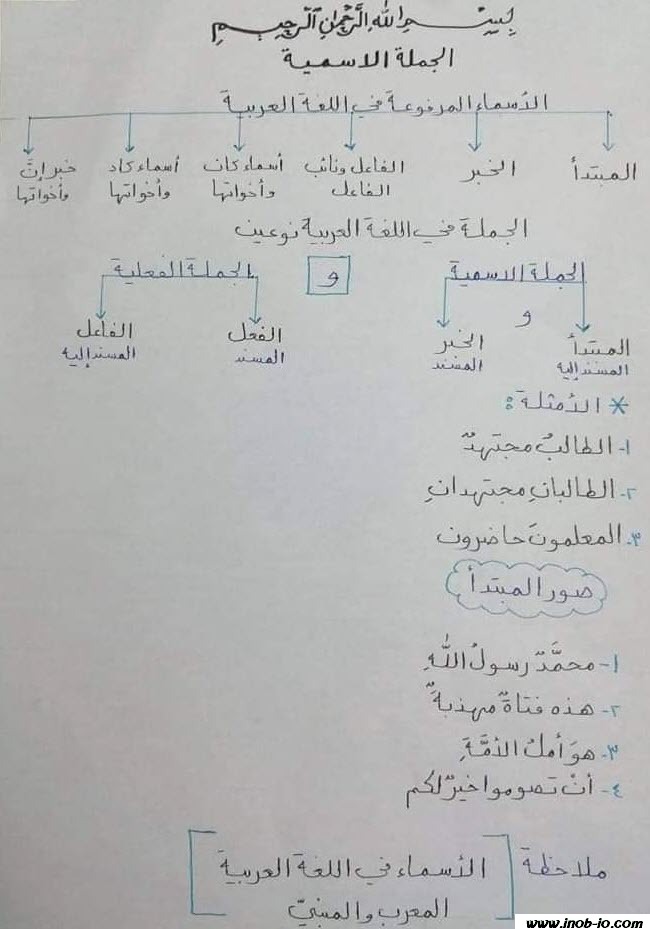 بِسْمِ اللهِ الرَّحْمٰنِ الرَّحِيمِ
الجملة الاسمية
الأسماء المرفوعة في اللغة العربية
المبتدأ الخبر الفاعل ونائب الفاعل أسماء كان وأخواتها أسماء كاد وأخواتها خبر إنَّ وأخواتها
الجملة في اللغة العربية نوعين
الجملة الاسمية و الجملة الفعلية
و
المبتدأ الخبر الفعل الفاعل
المسند إليه المسند المسند المسند إليه
* الأمثلة:
١- الطالبُ مجتهدٌ
٢- الطالبانِ مجتهدانِ
٣- المعلمونَ حاضرون
صور المبتدأ
١- محمَّدٌ رسولُ اللهِ
٢- هذه فتاةٌ مهذبةٌ
٣- هوَ أملُ الأمَّةِ
٤- أنْ تصوموا خيرٌ لكم
ملاحظة [الأسماء في اللغة العربية
المعرب والمبنيّ]
www.inob-io.com